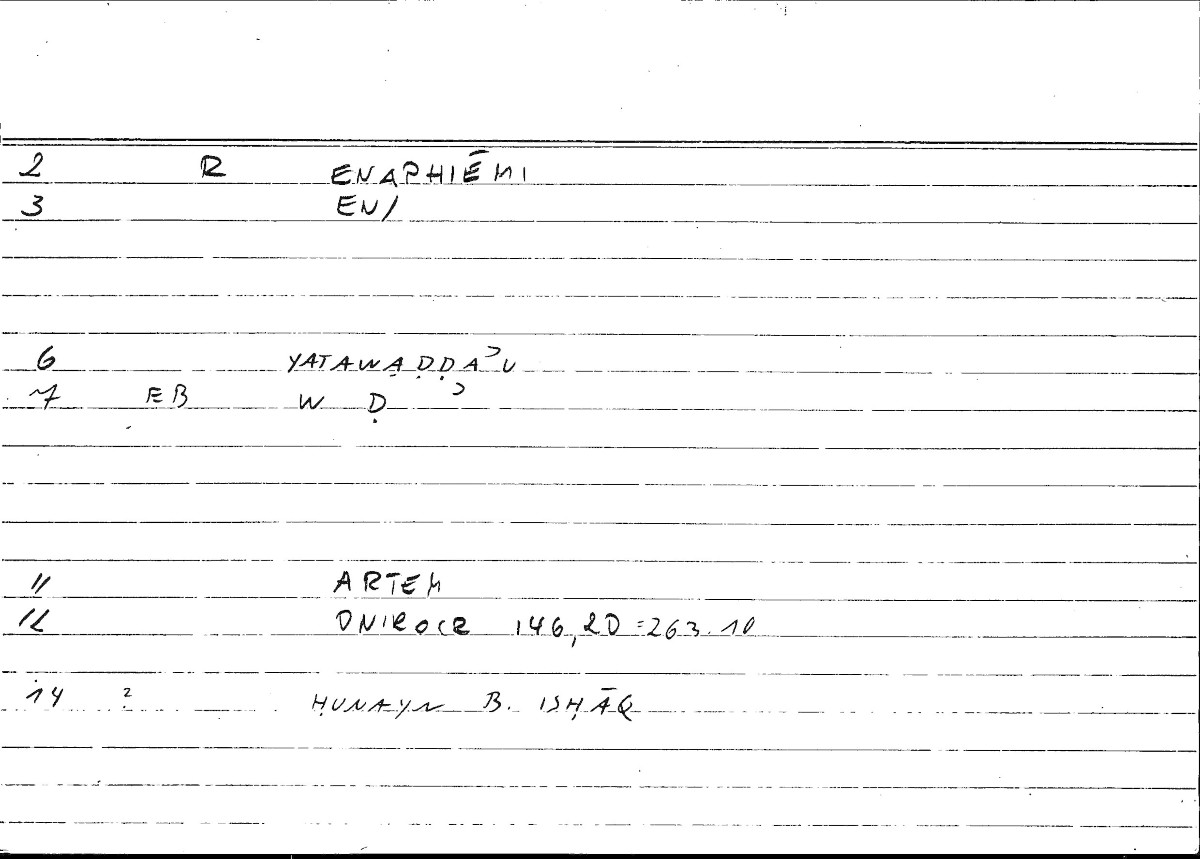 2 R ENAPHIĒMI
3 EN/
6 YATAWAḌḌAʾU
7 EB W Ḍ ʾ
11 ARTEM
12 ONIROCR 146,20=263.10
14 2 ḤUNAYN B. ISḤĀQ